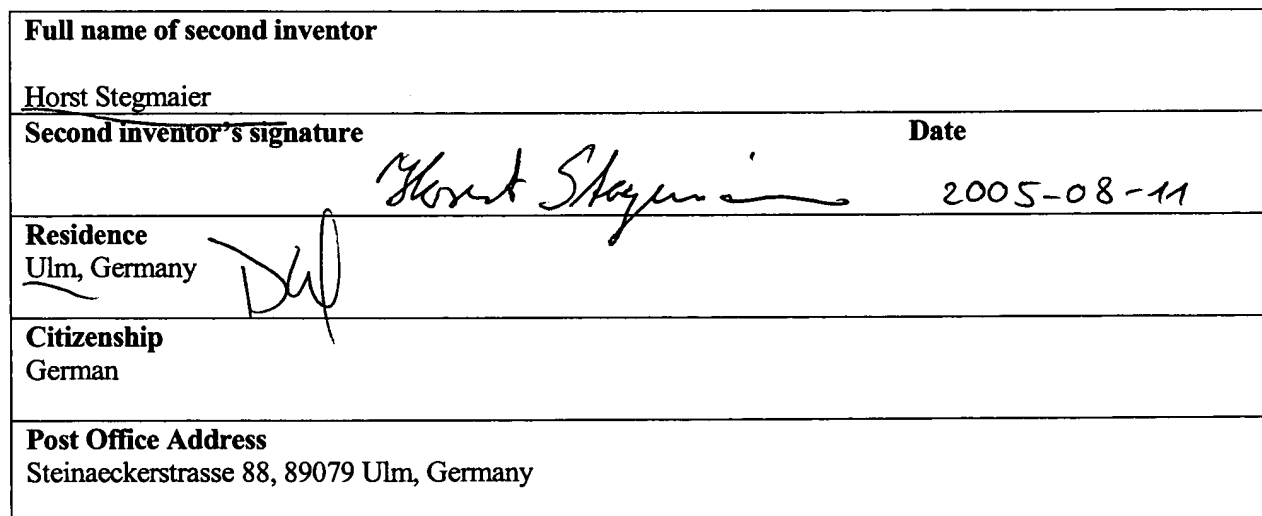 Full name of second inventor
Horst Stegmaier
Second inventor's signature Date
Horst Stegmaier 2005-08-11
Residence
Ulm, Germany
Citizenship
German
Post Office Address
Steinaeckerstrasse 88, 89079 Ulm, Germany